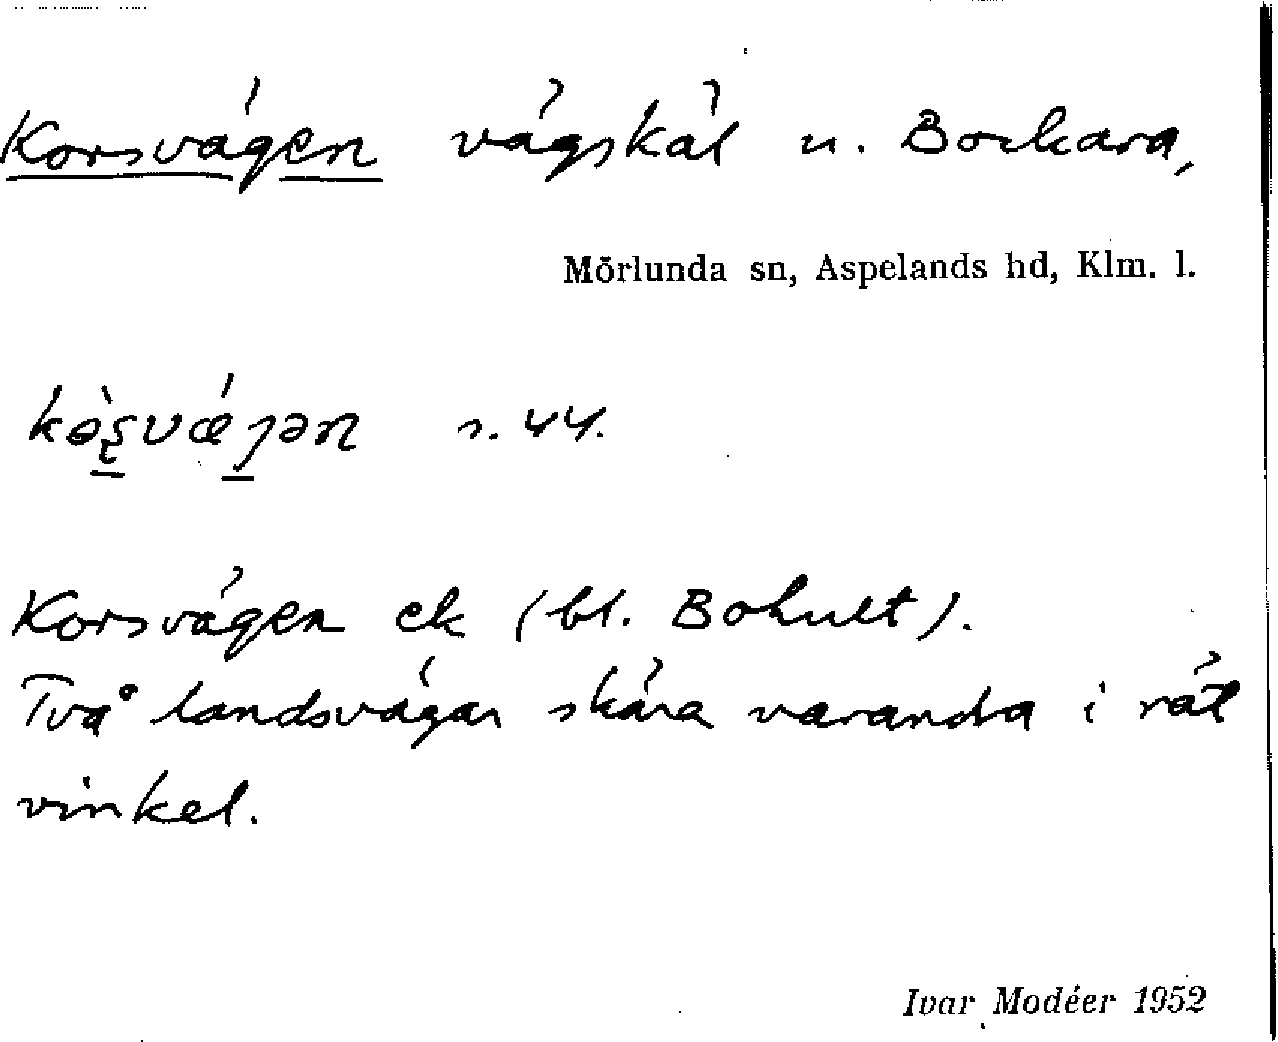 Korsvägen vägskäl u. Bockara,
Mörlunda sn, Aspelands hd, Klm. l.
s. 44.
Korsvägen ek (bl. Bohult).
Två landsvägar skära varandra i rät
vinkel.
Ivar Modéer 1952